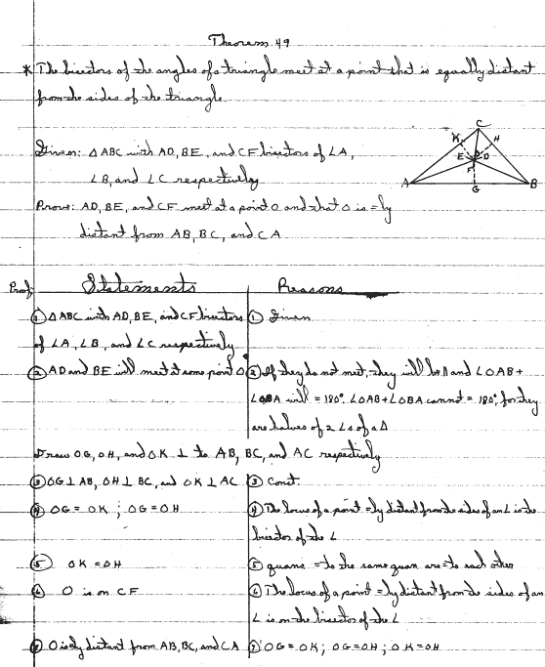 Theorem 49
* The bisectors of the angles of a triangle meet at a point that is equally distant
from the sides of the triangle.
Given: △ABC with AD, BE, and CF bisectors of ∠A,
∠B, and ∠C respectively
Prove: AD, BE, and CF meet at a point O and that O is =ly
distant from AB, BC, and CA
C
K H
E O D
F
A G B
Proof: Statements Reasons
① △ABC with AD, BE, and CF bisectors ① Given
of ∠A, ∠B, and ∠C respectively
② AD and BE will meet at some point O ② If they do not meet, they will be ∥ and ∠OAB +
∠OBA will = 180°. ∠OAB + ∠OBA cannot = 180°, for they
are halves of 2 ∠s of a △
Draw OG, OH, and OK ⊥ to AB, BC, and AC respectively
③ OG ⊥ AB, OH ⊥ BC, and OK ⊥ AC ③ Const.
④ OG = OK ; OG = OH ④ The locus of a point =ly distant from the sides of an ∠ is the
bisector of the ∠
⑤ OK = OH ⑤ quans = to the same quan are = to each other
⑥ O is on CF ⑥ The locus of a point =ly distant from the sides of an
∠ is on the bisector of the ∠
⑦ O is =ly distant from AB, BC, and CA ⑦ OG = OK; OG = OH; OK = OH